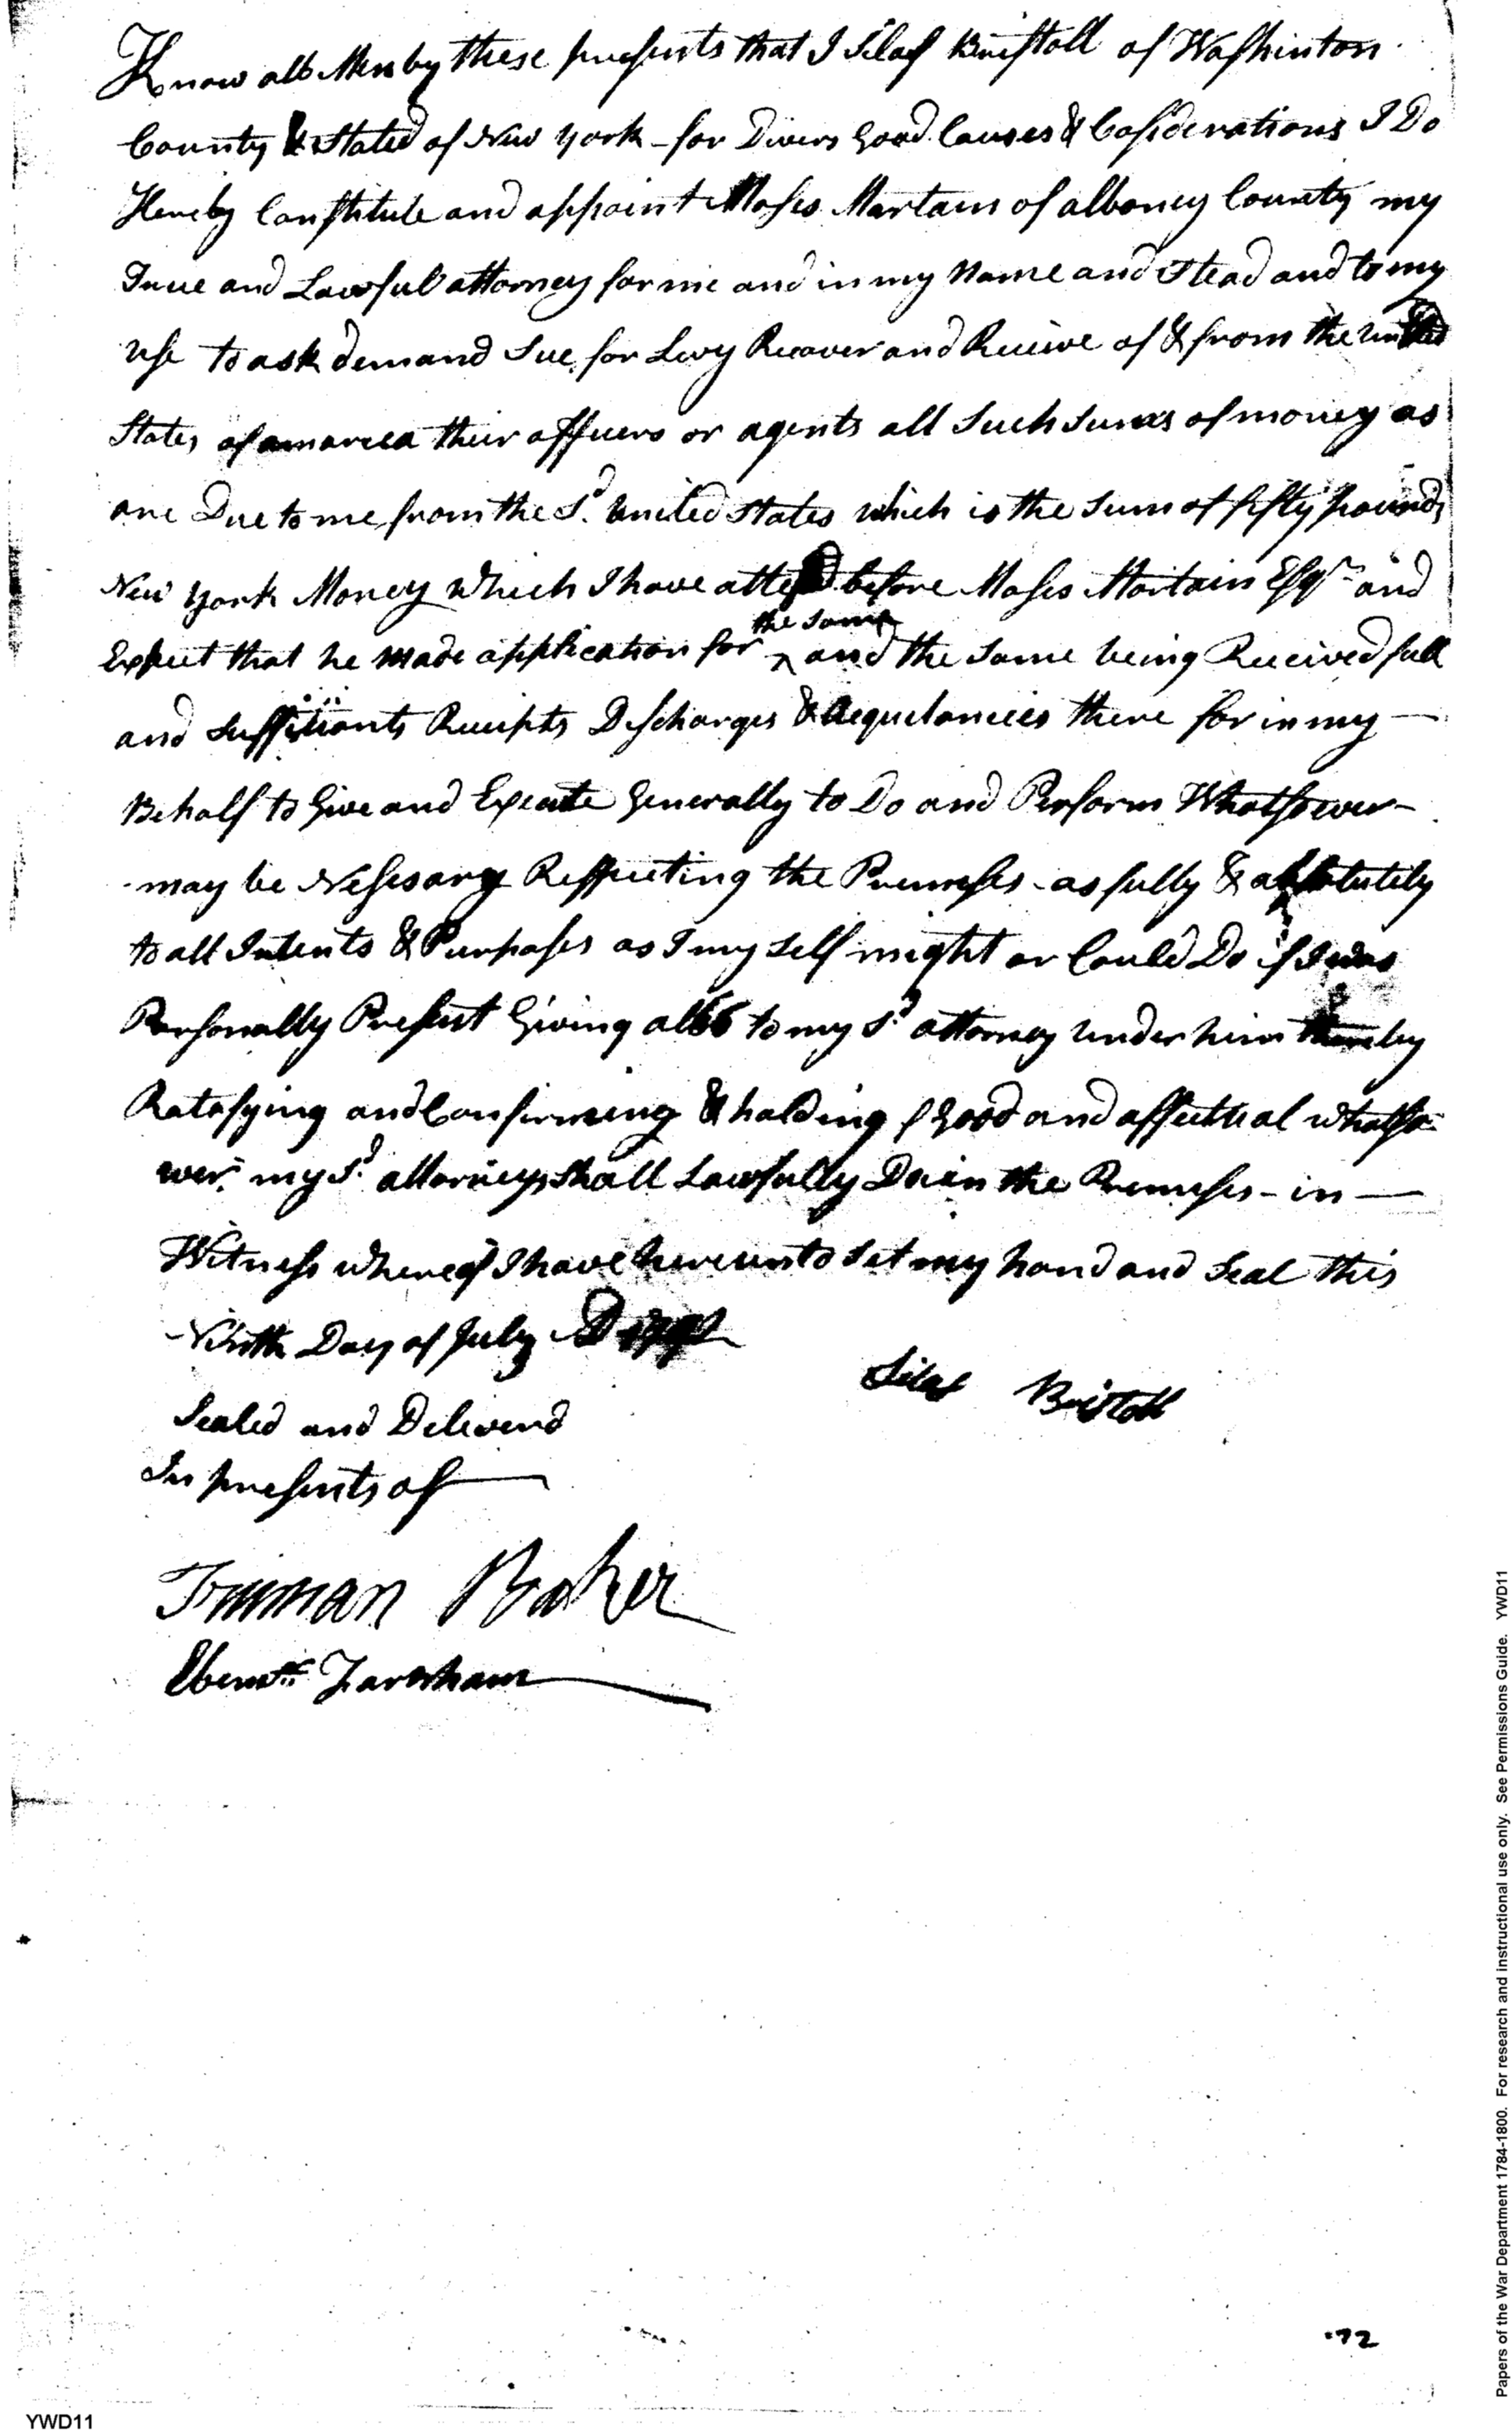 Know all Men by these presents that I Silas Bristoll of Washinton
County & Stated of New York - for Divers Good Causes & Cosiderations I Do
Hereby Constitute and appoint Moses Martain of albaney County my
True and Lawful attorney for me and in my Name and Stead and to my
use to ask demand Sue for Levy Recover and Receive of & from the united
States of amarica their officers or agents all Such Sums of money as
are Due to me from the Sd. United States which is the Sum of fifty pounds
New York Money which I have before Moses Martain Esqr and
Expect that he made application for the same and the Same being Received full
and Suffitiants Receipts Discharges & Aequitances there for in my —
Behalf to Give and Execute Generally to Do and Perform Whatsoever -
may be Nessesary Respecting the Premeses - as fully & absolutely
to all Intents & Purposes as I my Self might or Could Do if I was
Personally Present Giving also to my Sd. attorney under him thereby
Ratafying and Confirming & holding Good and affectual whatso
ever my Sd. attorney Shall Lawfully Do in the Premeses - in —
Witness whereof I have hereunto Set my hand and Seal this
Ninth Day of July
Silas Bristoll
Sealed and Deliverd
In presents of
Truman Baker
Ebenezr Farnham
72
YWD11
Papers of the War Department 1784-1800. For research and instructional use only. See Permissions Guide. YWD11